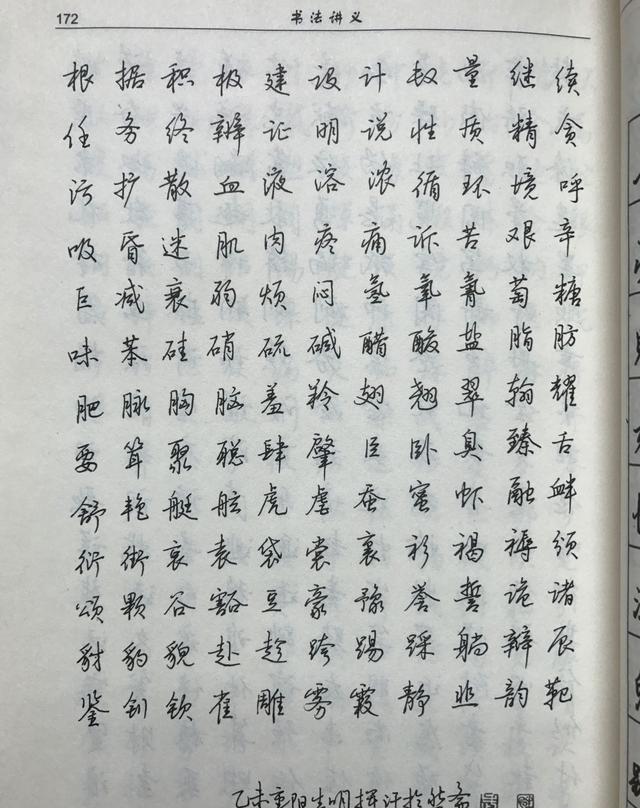 172 书法讲义
根据积极建设计叔量继续
任务终辩证明说性质精贪
污扩散血液溶浓循环境呼
吸昏迷肌肉疼痛诉苦艰辛
巨减衰弱烦闷氢氧氰萄糖
味苯硅硝硫碱醋酸盐脂肪
肥脉胸脑羞羚翅翘翠翰耀
要耸聚聪肆肇臣卧臭臻舌
舒艳艇舷虎虐蚕蜜虾融衅
衍衔哀袁袋裳裹衫褐褥须
颂颗谷豁豆豪豫誉誓诡诸
豺豹貌赴趁跨踢踩躺辩辰
鉴钊钦雀雕雾霞静韭韵靶
乙未重阳